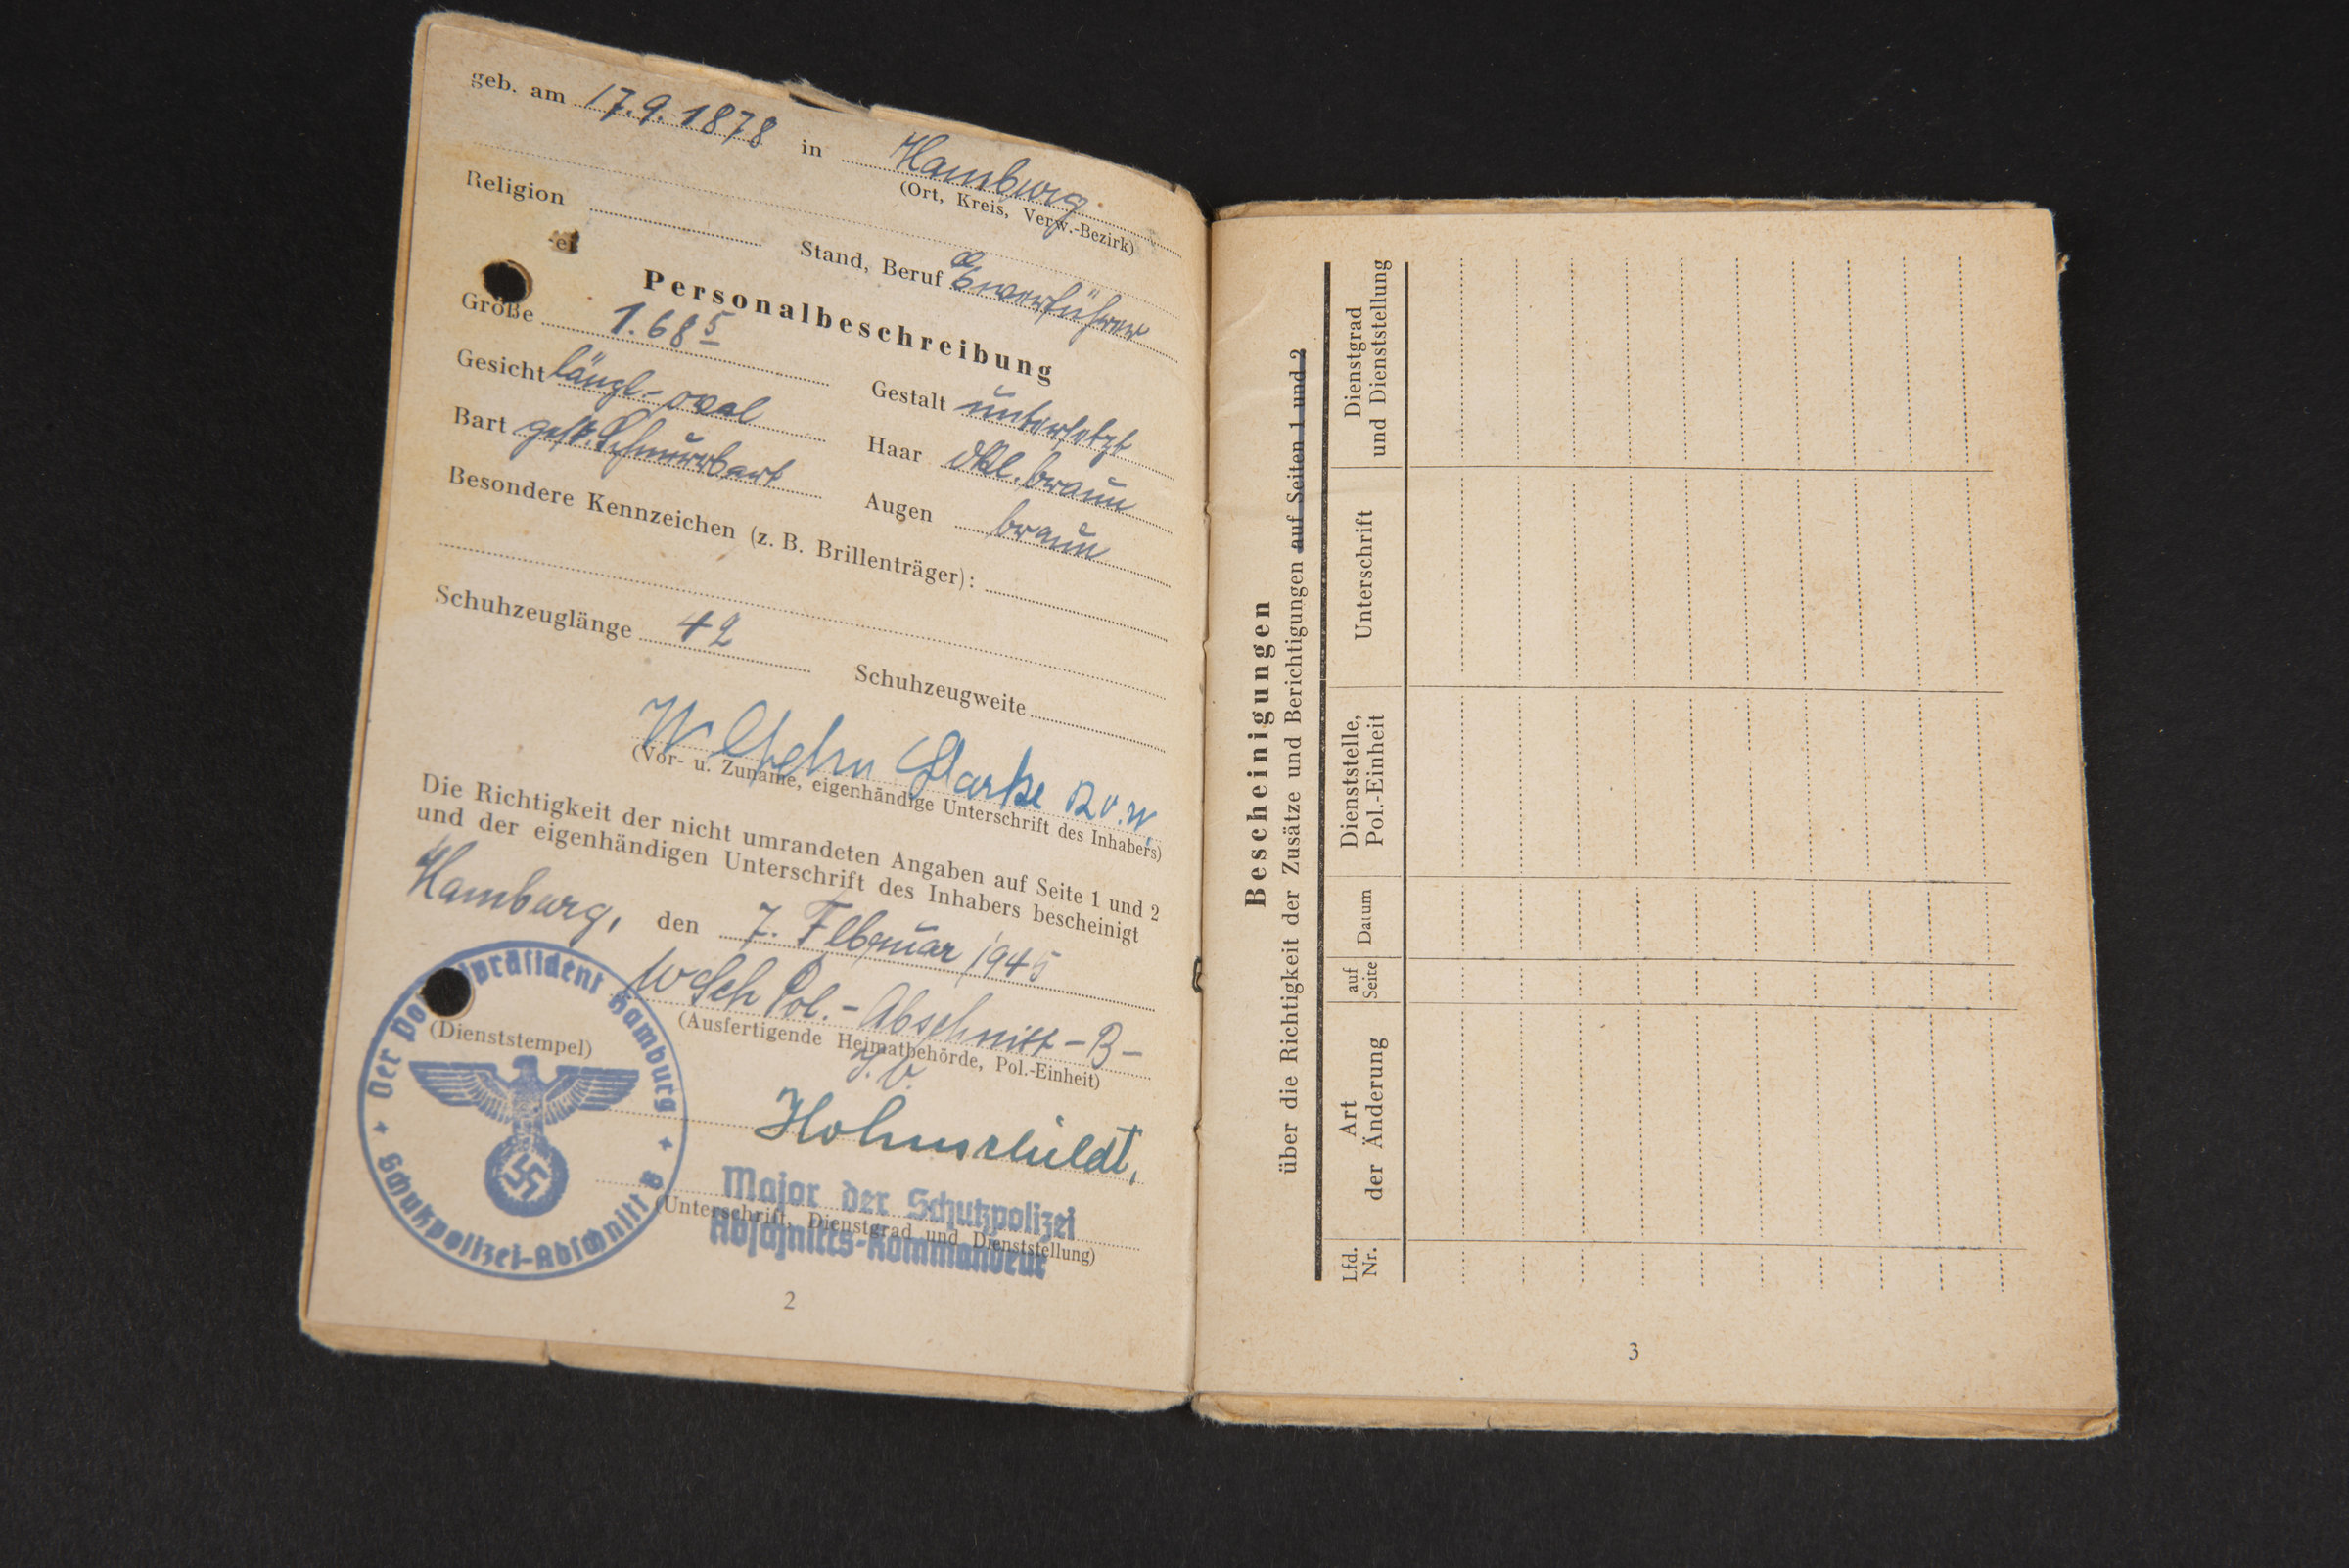 geb. am 17.9.1878 in Hamburg
(Ort, Kreis, Verw.-Bezirk)
Religion Stand, Beruf Ewerführer
Personalbeschreibung
Größe 1.68⁵ Gestalt untersetzt
Gesicht längl.-oval Haar dkl. braun
Bart gest. Schnurrbart Augen braun
Besondere Kennzeichen (z. B. Brillenträger):
Schuhzeuglänge 42 Schuhzeugweite
(Vor- u. Zuname, eigenhändige Unterschrift des Inhabers)
Die Richtigkeit der nicht umrandeten Angaben auf Seite 1 und 2
und der eigenhändigen Unterschrift des Inhabers bescheinigt
Hamburg, den 7. Februar 1945
Sch Pol.-Abschnitt-B-
(Ausfertigende Heimatbehörde, Pol.-Einheit)
(Dienststempel)
Der Polizeipräsident Hamburg
Schutzpolizei-Abschnitt B
Major der Schutzpolizei
(Unterschrift, Dienstgrad und Dienststellung)
Abschnitts-Kommandeur
2
Bescheinigungen
über die Richtigkeit der Zusätze und Berichtigungen auf Seiten 1 und 2
Lfd. Nr.
Art der Änderung
auf Seite
Datum
Dienststelle, Pol.-Einheit
Unterschrift
Dienstgrad und Dienststellung
3